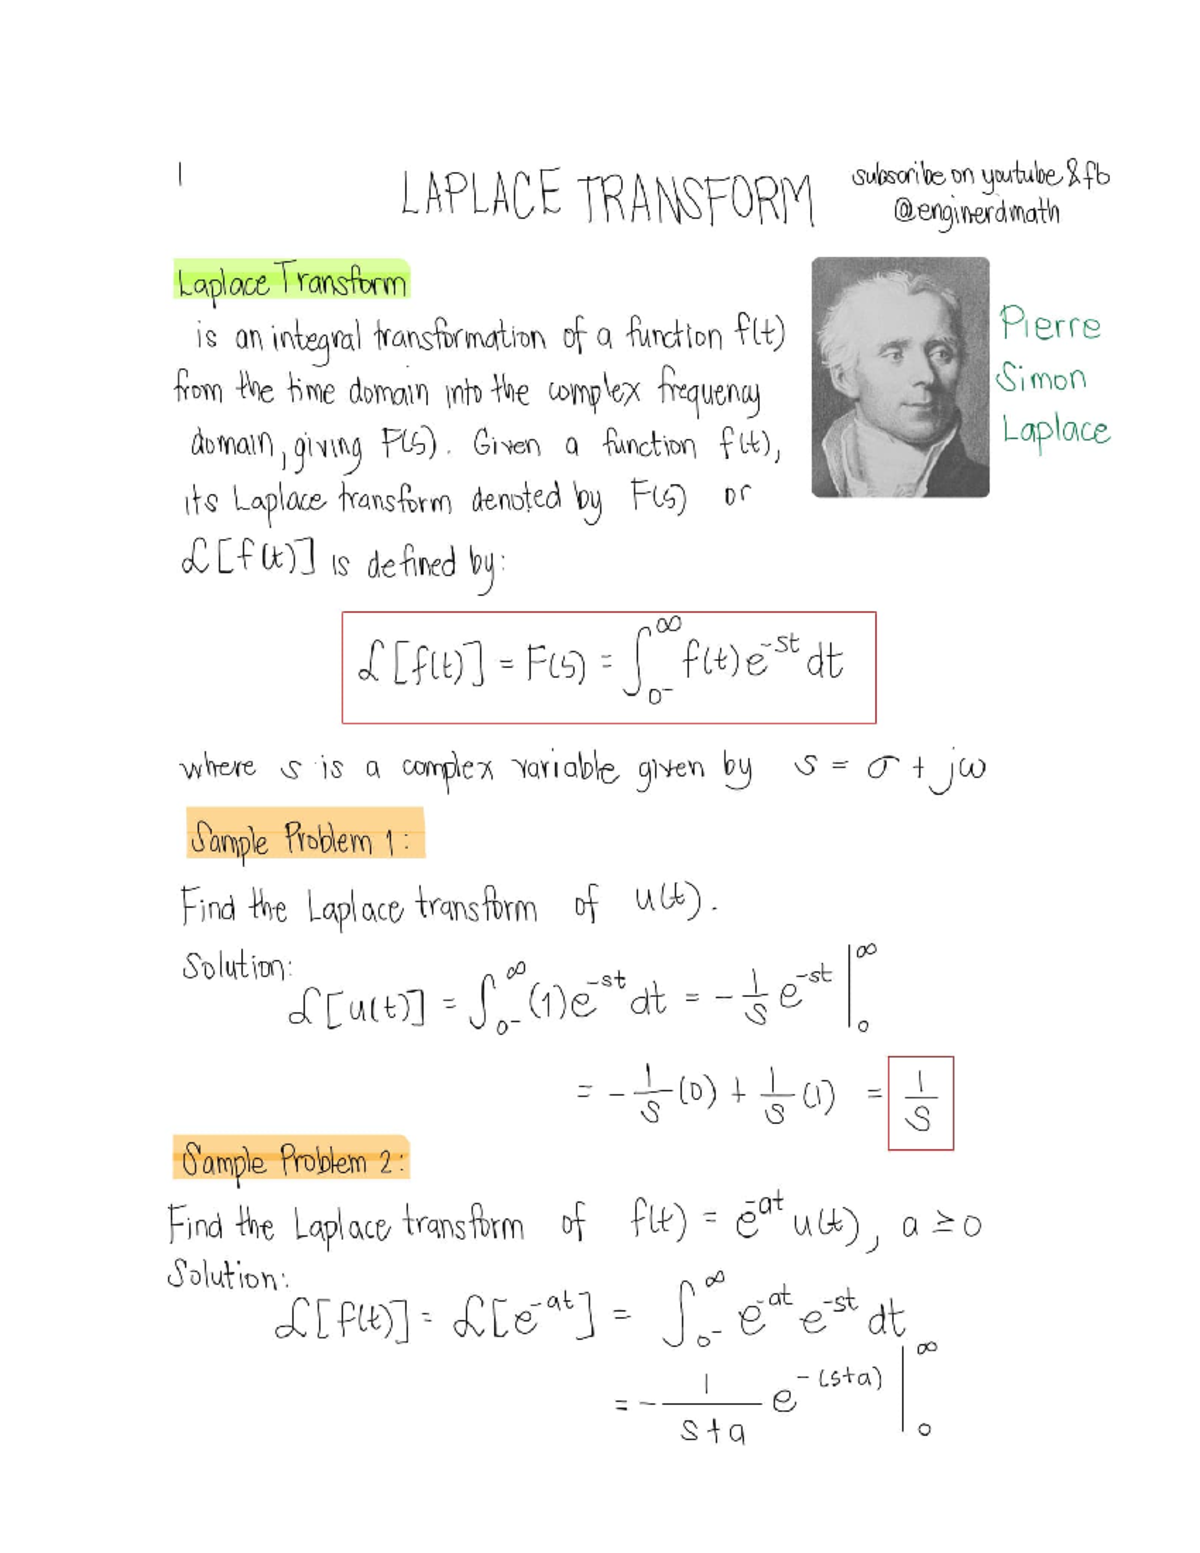 1
LAPLACE TRANSFORM
subscribe on youtube & fb
@enginerdmath
Laplace Transform
is an integral transformation of a function f(t)
from the time domain into the complex frequency
domain, giving F(s). Given a function f(t),
its Laplace transform denoted by F(s) or
ℒ[f(t)] is defined by:
Pierre
Simon
Laplace
ℒ[f(t)] = F(s) = ∫₀₋^∞ f(t)e^-st dt
where s is a complex variable given by s = σ + jω
Sample Problem 1:
Find the Laplace transform of u(t).
Solution:
ℒ[u(t)] = ∫₀₋^∞ (1)e^-st dt = - 1/s e^-st |₀^∞
= - 1/s (0) + 1/s (1) = 1/s
Sample Problem 2:
Find the Laplace transform of f(t) = e^-at u(t), a ≥ 0
Solution:
ℒ[f(t)] = ℒ[e^-at] = ∫₀₋^∞ e^-at e^-st dt
= - 1/(s+a) e^-(s+a) |₀^∞